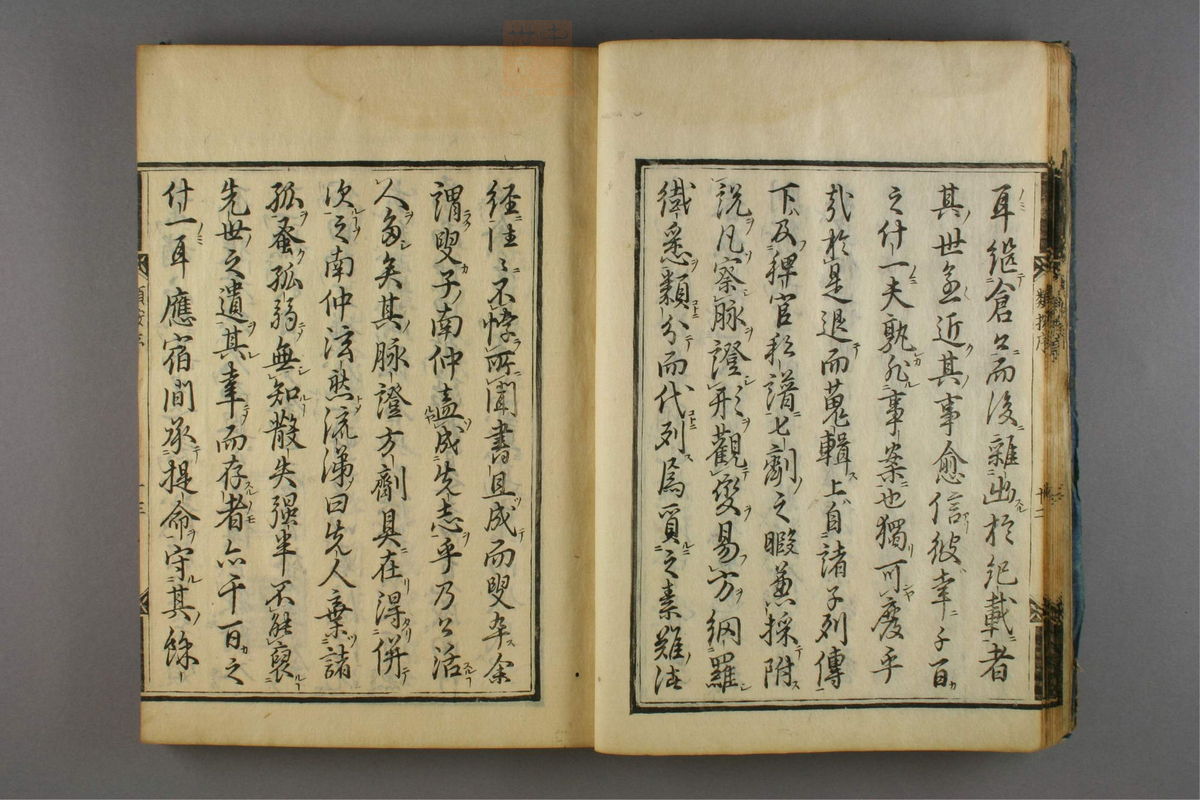 耳継倉公而後雜出於紀載者
其世至近其事愈信彼幸千百
之什一夫孰非事案也獨可廢乎
哉於是退而蒐輯上自諸子列傳
下及稗官私譜七劑之暇兼採附
說凡察脉證形觀變易方網羅
織悉類分而代列焉質之素難諸
経往々不悖所聞書且成而叟卒余
謂叟子南仲盍成先志乎乃公活
人多矣其脉證方劑具在得併
次之南仲泫然流涕曰先人棄諸
孤蚤孤弱無知散失强半不能裒
先世之遺其幸而存者亦千百之
什一耳應宿間承提命守其餘
類按序
廿二